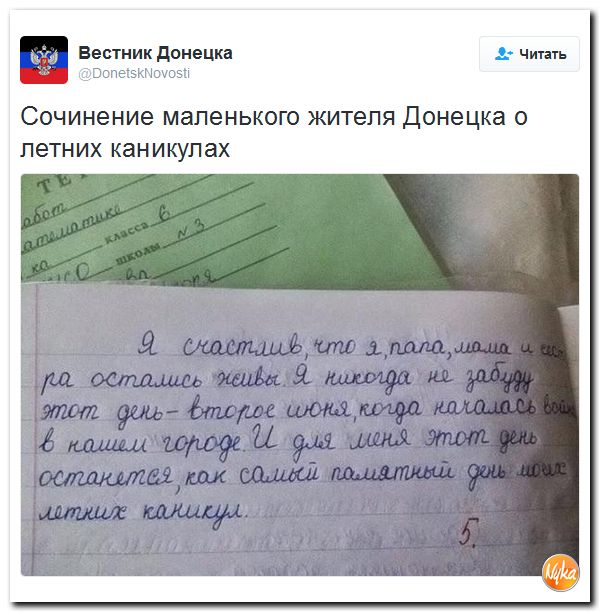 Вестник Донецка
@DonetskNovosti
Читать
Сочинение маленького жителя Донецка о
летних каникулах
ТЕТ
работ
математике
ка класса 6
школы №3
Я счастлив, что я, папа, мама и сест-
ра остались живы. Я никогда не забуду
этот день – второе июня, когда началась война
в нашем городе. И для меня этот день
останется, как самый памятный день моих
летних каникул.
5.
Nyka